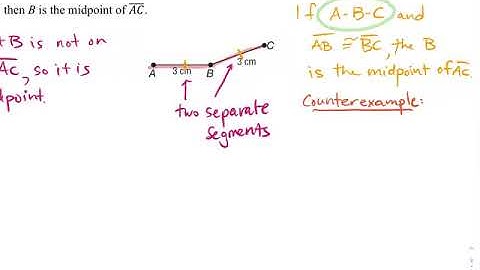 then B is the midpoint of AC.
B is not on
AC, so it is
A
3 cm
B
3 cm
C
two separate
segments
If A-B-C and
AB ≅ BC, the B
is the midpoint of AC.
Counterexample: